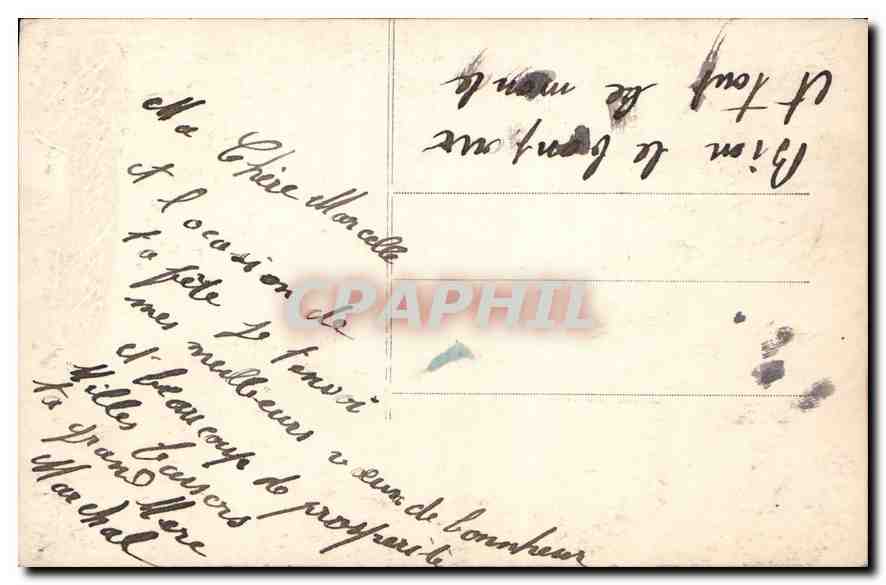 Ma Chère Marcelle
a l'ocasion de
ta fête Je t'envoi
mes meulleurs vœux de bonheur
et beaucoup de prosperite
Milles baisers
ta grand Mere
Marchal
Bien le bonjour
a tout le monde
CPAPHIL